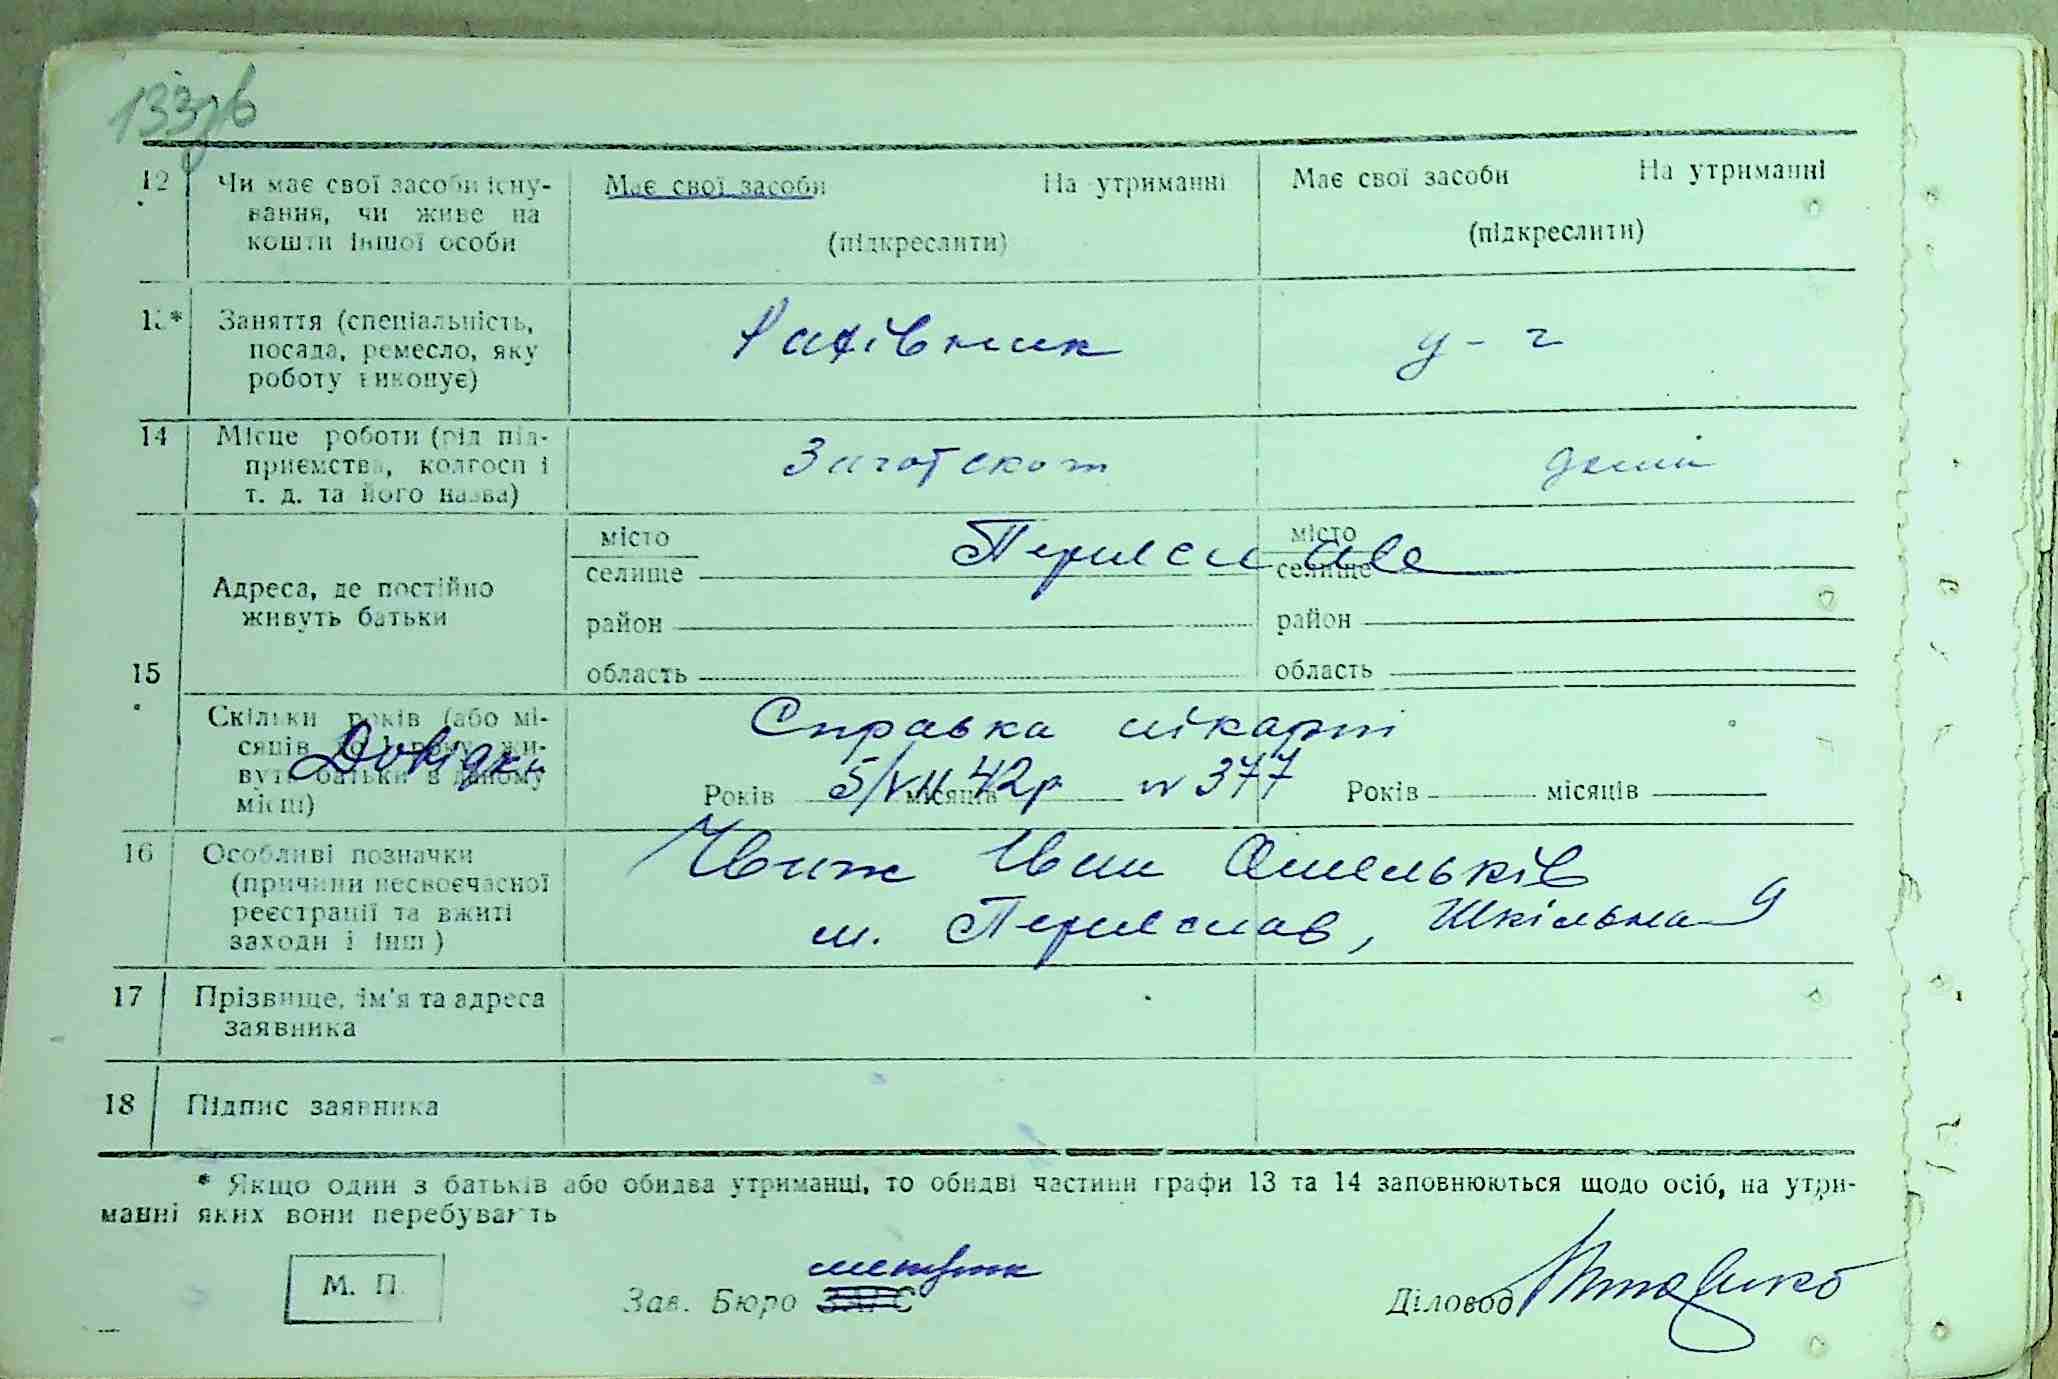 133
12 Чи має свої засоби існу- Має свої засоби На утриманні Має свої засоби На утриманні
вання, чи живе на
кошти іншої особи (підкреслити) (підкреслити)
13* Заняття (спеціальність,
посада, ремесло, яку Рахівник у-г
роботу виконує)
14 Місце роботи (рід під-
приємства, колгосп і Заготскот дома
т. д. та його назва)
місто Переяслав місто
селище селище
Адреса, де постійно
живуть батьки район район
15 область область
Скільки років (або мі- Справка лікарні
сяців до 1 року) жи- Довідки
вуть батьки в даному
місці) Років 5/VII 42р місяців № 377 Років місяців
16 Особливі позначки Іван Омельків
(причини несвоєчасної
реєстрації та вжиті м. Переяслав, Шкільна 9
заходи і інш)
17 Прізвище, ім'я та адреса
заявника
18 Підпис заявника
* Якщо один з батьків або обидва утриманці, то обидві частини графи 13 та 14 заповнюються щодо осіб, на утри-
манні яких вони перебувають
метрик
М. П. Зав. Бюро ЗАГС Діловод